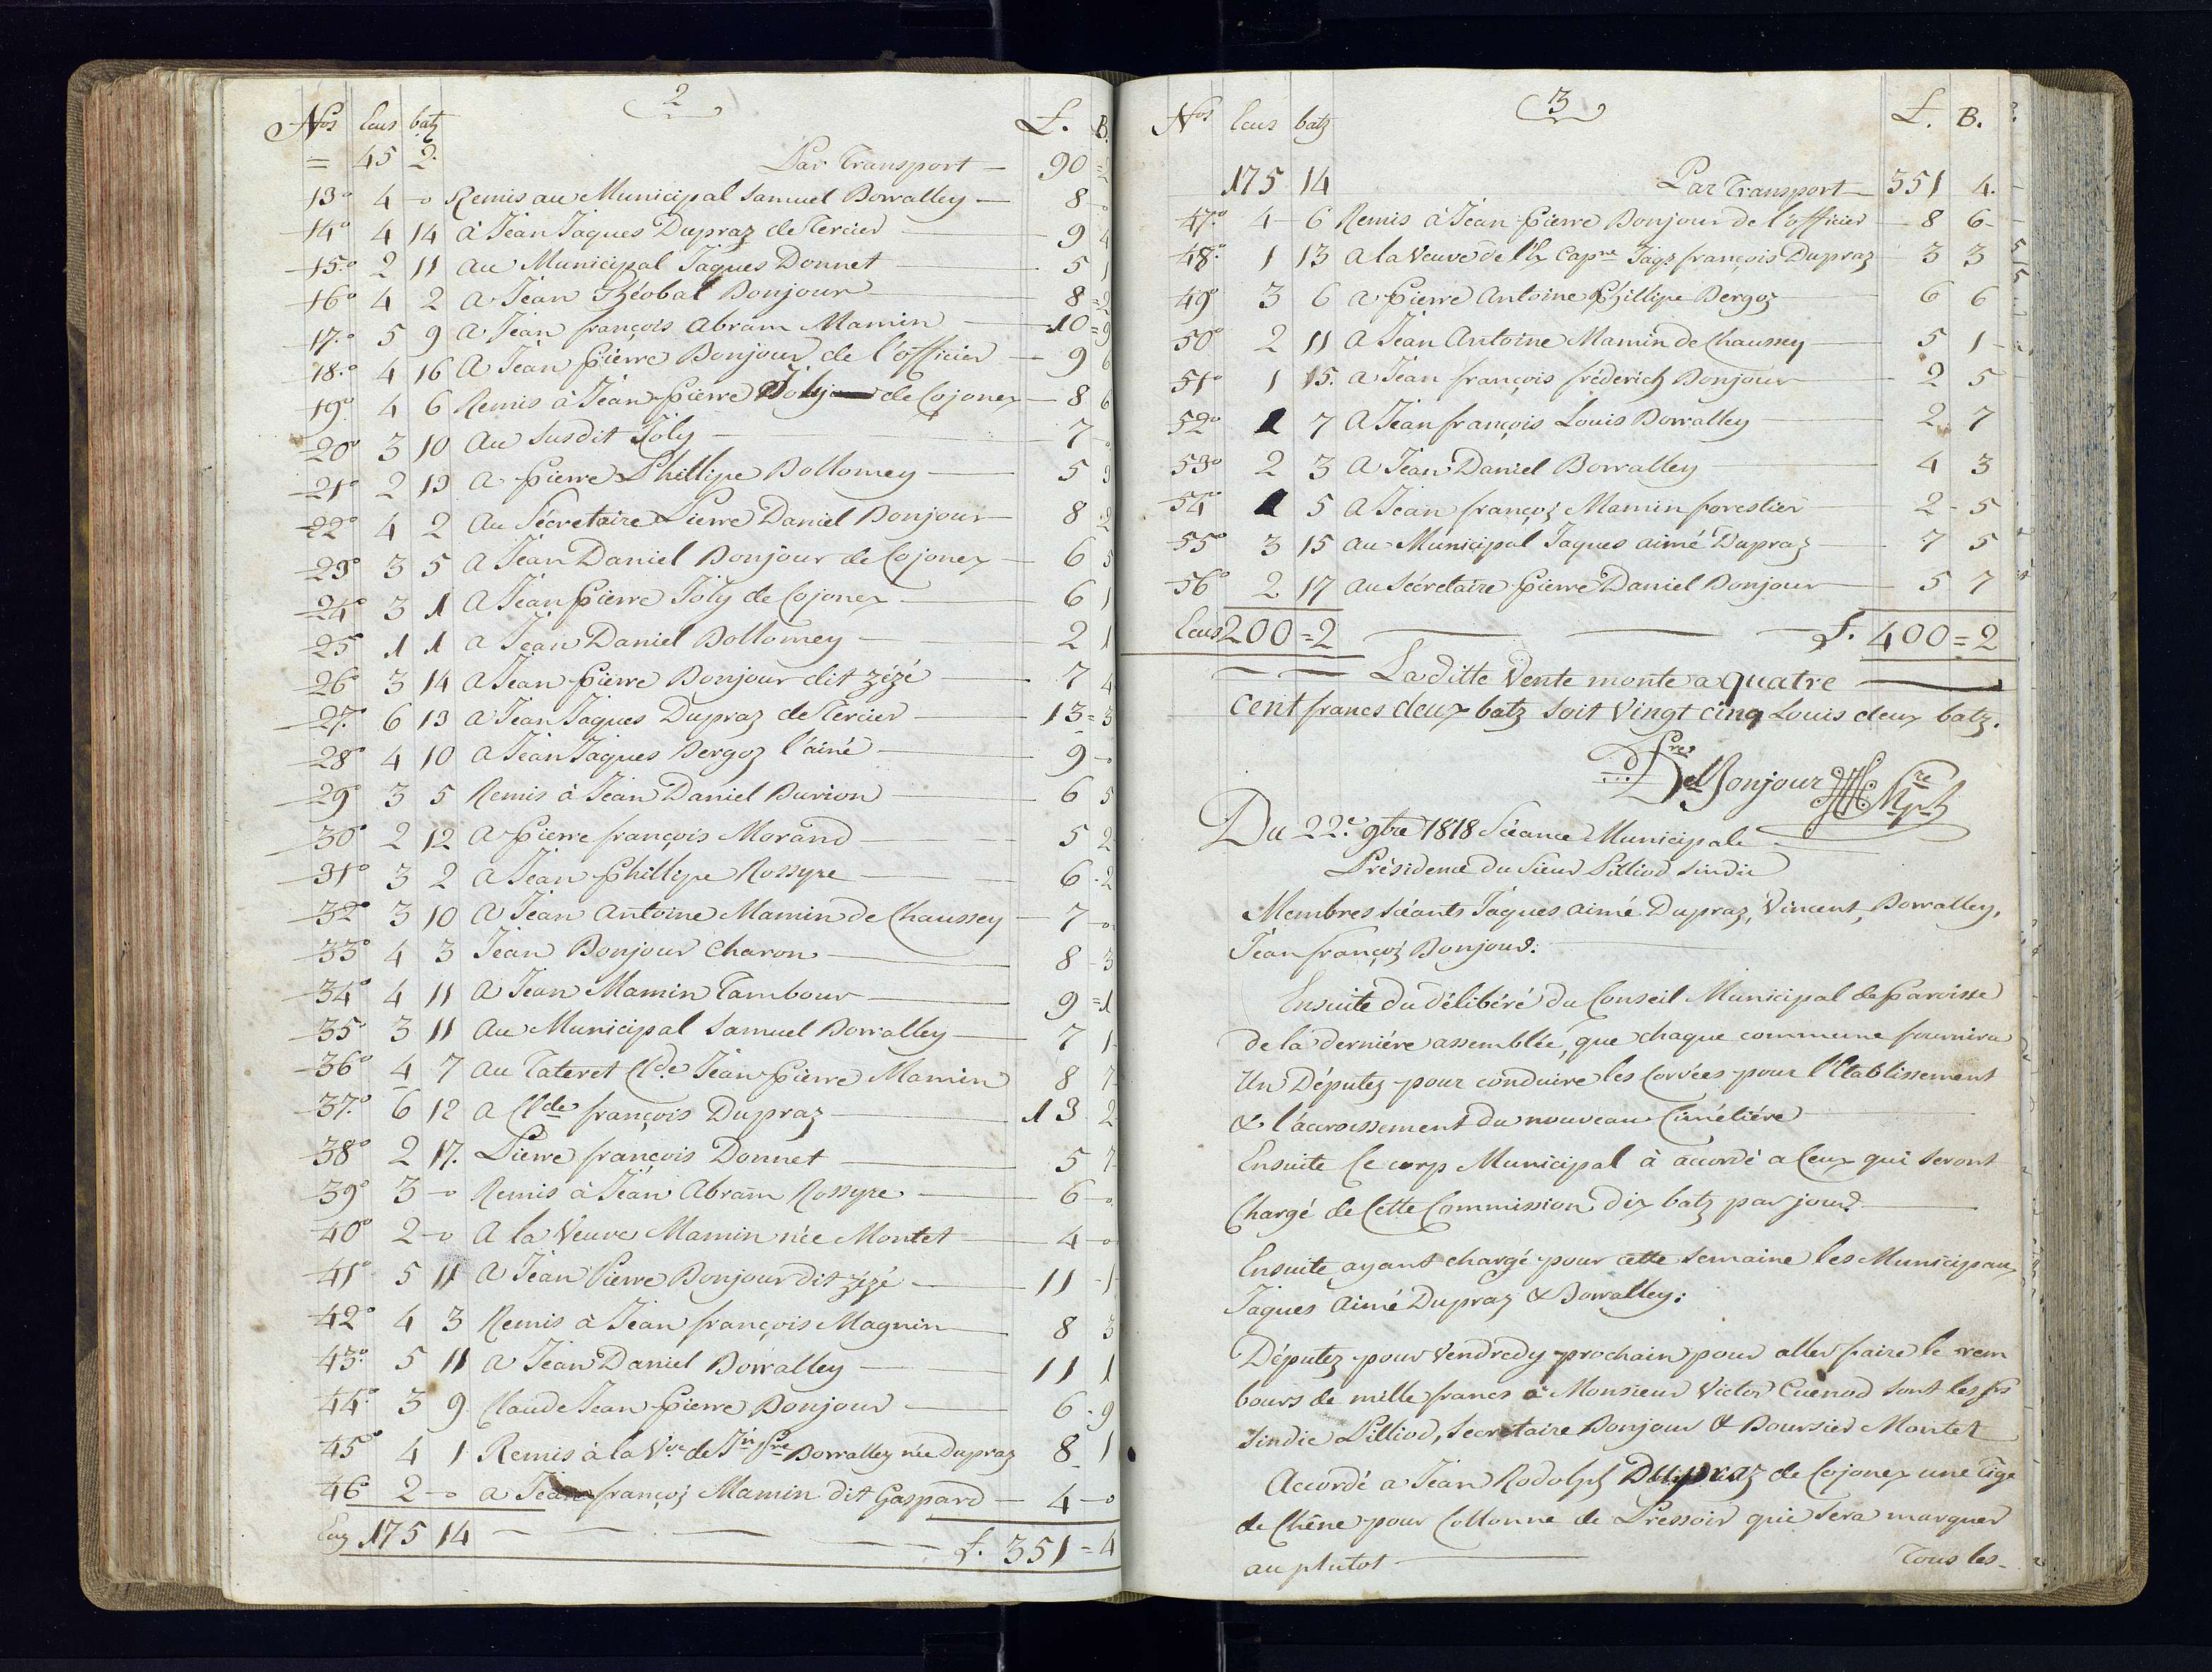 2
Nos Ecus batz £. B.
= 45 2. Par Transport — 90 = 2
13° 4 - 0 Remis au Municipal Samuel Borralley — 8 - 0
14° 4 14 à Jean Jaques Dupraz de Tercier — 9 4
15° 2 11 au Municipal Jaques Donnet — 5 1
16° 4 2 a Jean Théobal Bonjour — 8 = 2
17° 5 9 a Jean françois abram Mamin — 10 = 9
18° 4 16 a Jean Pierre Bonjour de l'officier — 9 6
19° 4 6 Remis à Jean Pierre Joly de Cojonex — 8 6
20° 3 10 au susdit Joly — 7 - 0
21° 2 13 a Pierre Phillipe Bollomey — 5 3
22° 4 2 au Sécretaire Pierre Daniel Bonjour — 8 2
23° 3 5 a Jean Daniel Bonjour de Cojonex — 6 5
24° 3 1 a Jean Pierre Joly de Cojonex — 6 1
25 1 1 a Jean Daniel Bollomey — 2 1
26° 3 14 a Jean Pierre Bonjour dit zézé — 7 4
27° 6 13 a Jean Jaques Dupraz de Tercier — 13 = 3
28° 4 10 a Jean Jaques Bergoz l'ainé — 9 - 0
29° 3 5 Remis à Jean Daniel Burion — 6 5
30° 2 12 a Pierre françois Morand — 5 2
31° 3 2 a Jean Phillipe Rossyre — 6 - 2
32° 3 10 a Jean antoine Mamin de Chaussey — 7 - 0
33° 4 3 Jean Bonjour Charon — 8 - 3
34° 4 11 a Jean Mamin Tambour — 9 = 1
35° 3 11 au Municipal Samuel Borralley — 7 1
36° 4 7 au Tateret Cl.de Jean Pierre Mamin 8 7
37° 6 12 a Cl.de françois Dupraz — 13 2
38° 2 17. Pierre françois Donnet — 5 7
39° 3 - 0 Remis à Jean abram Rossyre — 6 - 0
40° 2 - 0 a la Veuve Mamin née Montet — 4 - 0
41° 5 11 a Jean Pierre Bonjour dit zézé — 11 - 1
42° 4 3 Remis à Jean françois Magnin — 8 3
43° 5 11 a Jean Daniel Borralley — 11 1
44° 3 9 Claude Jean Pierre Bonjour — 6 - 9
45° 4 1 Remis à la Vve de Jn fre Borralley née Dupraz 8 1
46° 2 - 0 a Jean françoi Mamin dit Gaspard — 4 - 0
175 14 — £. 351 = 4
3
Nos Ecus batz £. B.
175 14 Par Transport — 351 4.
47° 4 - 6 Remis à Jean Pierre Bonjour de l'officier — 8 6
48° 1 13 a la Veuve de l'Ex Capne Jaqs françois Dupraz — 3 3
49° 3 6 a Pierre antoine Phillipe Bergoz 6 6
50° 2 11 a Jean antoine Mamin de Chaussey — 5 1
51° 1 15. a Jean françois fréderich Bonjour — 2 5
52° 1 7 a Jean françois Louis Borralley — 2 7
53° 2 3 a Jean Daniel Borralley — 4 3
54° 1 5 a Jean françoi Mamin forestier — 2 - 5
55° 3 15 au Municipal Jaques aimé Dupraz — 7 5
56° 2 17 au Sécretaire Pierre Daniel Bonjour — 5 7
Ecus 200 = 2 — £. 400 = 2
La ditte Vente monte a quatre
cent francs deux batz soit Vingt cinq Louis deux batz.
Bonjour
Du 22.e 9bre 1818 Séance Municipale
Présidence du Sieur Pilliod Sindic
Membres séants Jaques aimé Dupraz, Vincent, Borralley,
Jean françoi Bonjour.
Ensuite du délibéré du Conseil Municipal de Paroisse
de la derniére assemblée, que chaque commune fournira
Un Députez pour conduire les Corvées pour l'Etablissement
& l'acroissement du nouveau Cimétiére
Ensuite le corp Municipal à accordé a Ceux qui seront
Chargé de Cette Commission dix batz par jour.
Ensuite ayant chargé pour cette semaine les Municipaux
Jaques Aimé Dupraz & Borralley:
Députez pour Vendredy prochain pour aller faire le rem
bours de mille francs à Monsieur Victor Cuénod sont les srs
Sindic Pilliod, Secretaire Bonjour & Boursier Montet
Accordé a Jean Rodolph Dupraz de Cojonex une tige
de Chêne pour Collonne de Pressoir qui sera marquer
au plutot
Tous les